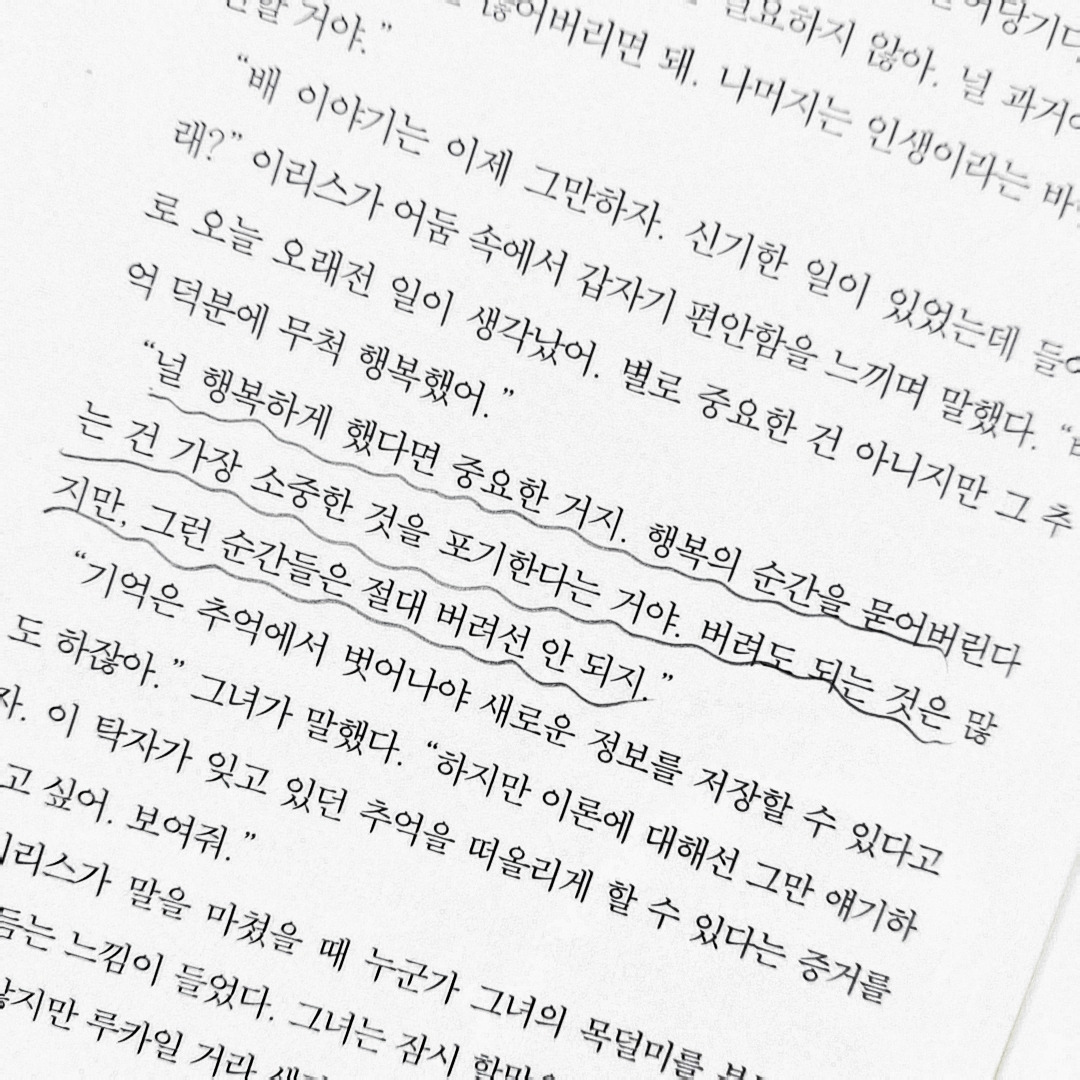 필요하지 않아. 널 과거에
어버리면 돼. 나머지는 인생이라는
할 거야.”
“배 이야기는 이제 그만하자. 신기한 일이 있었는데 들어
래?” 이리스가 어둠 속에서 갑자기 편안함을 느끼며 말했다.
로 오늘 오래전 일이 생각났어. 별로 중요한 건 아니지만 그 추
억 덕분에 무척 행복했어.”
“널 행복하게 했다면 중요한 거지. 행복의 순간을 묻어버린다
는 건 가장 소중한 것을 포기한다는 거야. 버려도 되는 것은 많
지만, 그런 순간들은 절대 버려선 안 되지.”
“기억은 추억에서 벗어나야 새로운 정보를 저장할 수 있다고
도 하잖아.” 그녀가 말했다. “하지만 이론에 대해선 그만 얘기하
자. 이 탁자가 잊고 있던 추억을 떠올리게 할 수 있다는 증거를
고 싶어. 보여줘.”
이리스가 말을 마쳤을 때 누군가 그녀의 목덜미를
듬는 느낌이 들었다. 그녀는 잠시
않지만 루카일 거라